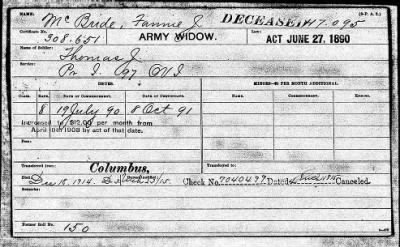 NAME: (O.P.A.S.)
McBride, Fannie J. DECEASED 417.095
Certificate No.
308.651 ARMY WIDOW. ACT JUNE 27, 1890
Name of Soldier:
Thomas J.
Service:
Pr I 97 OVI
ORDER. MINORS—$2 PER MONTH ADDITIONAL.
RATE. DATE OF COMMENCEMENT. DATE OF CERTIFICATE. COMMENCEMENT. ENDING.
8 19 July 90 8 Oct 91
Increased to $12.00 per month from
April 19, 1908 by act of that date.
Transferred from: Transferred to:
Columbus,
Died Dec 18, 1914.
Check No. 7040499 Dated Canceled.
Remarks:
Former Roll No.
150